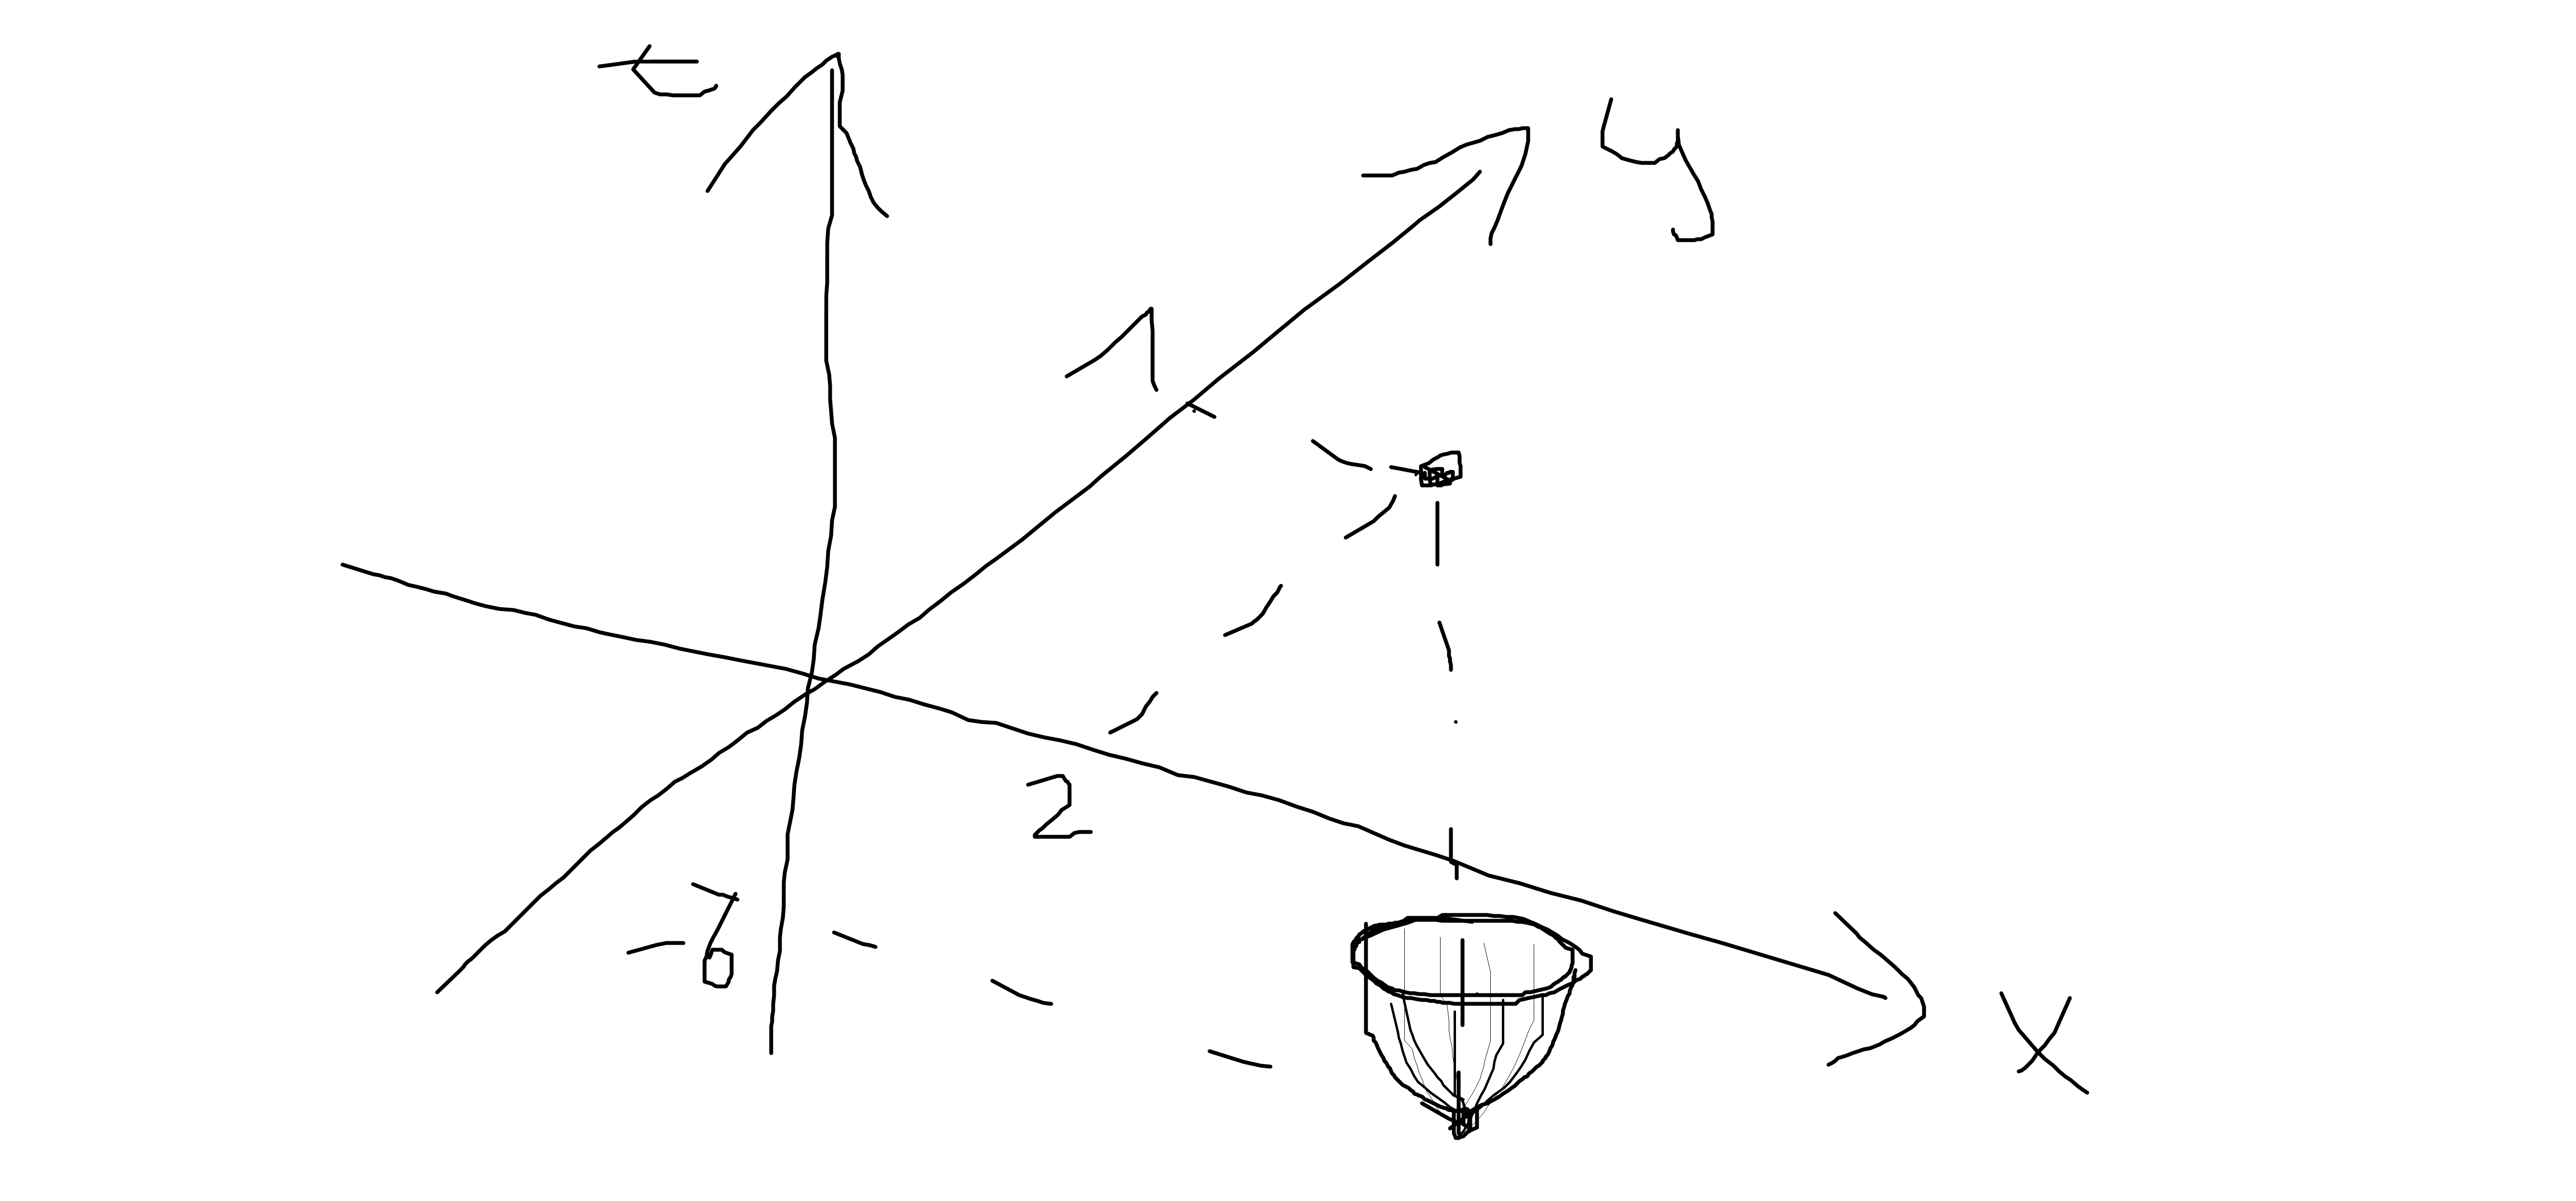 t
y
1
2
x